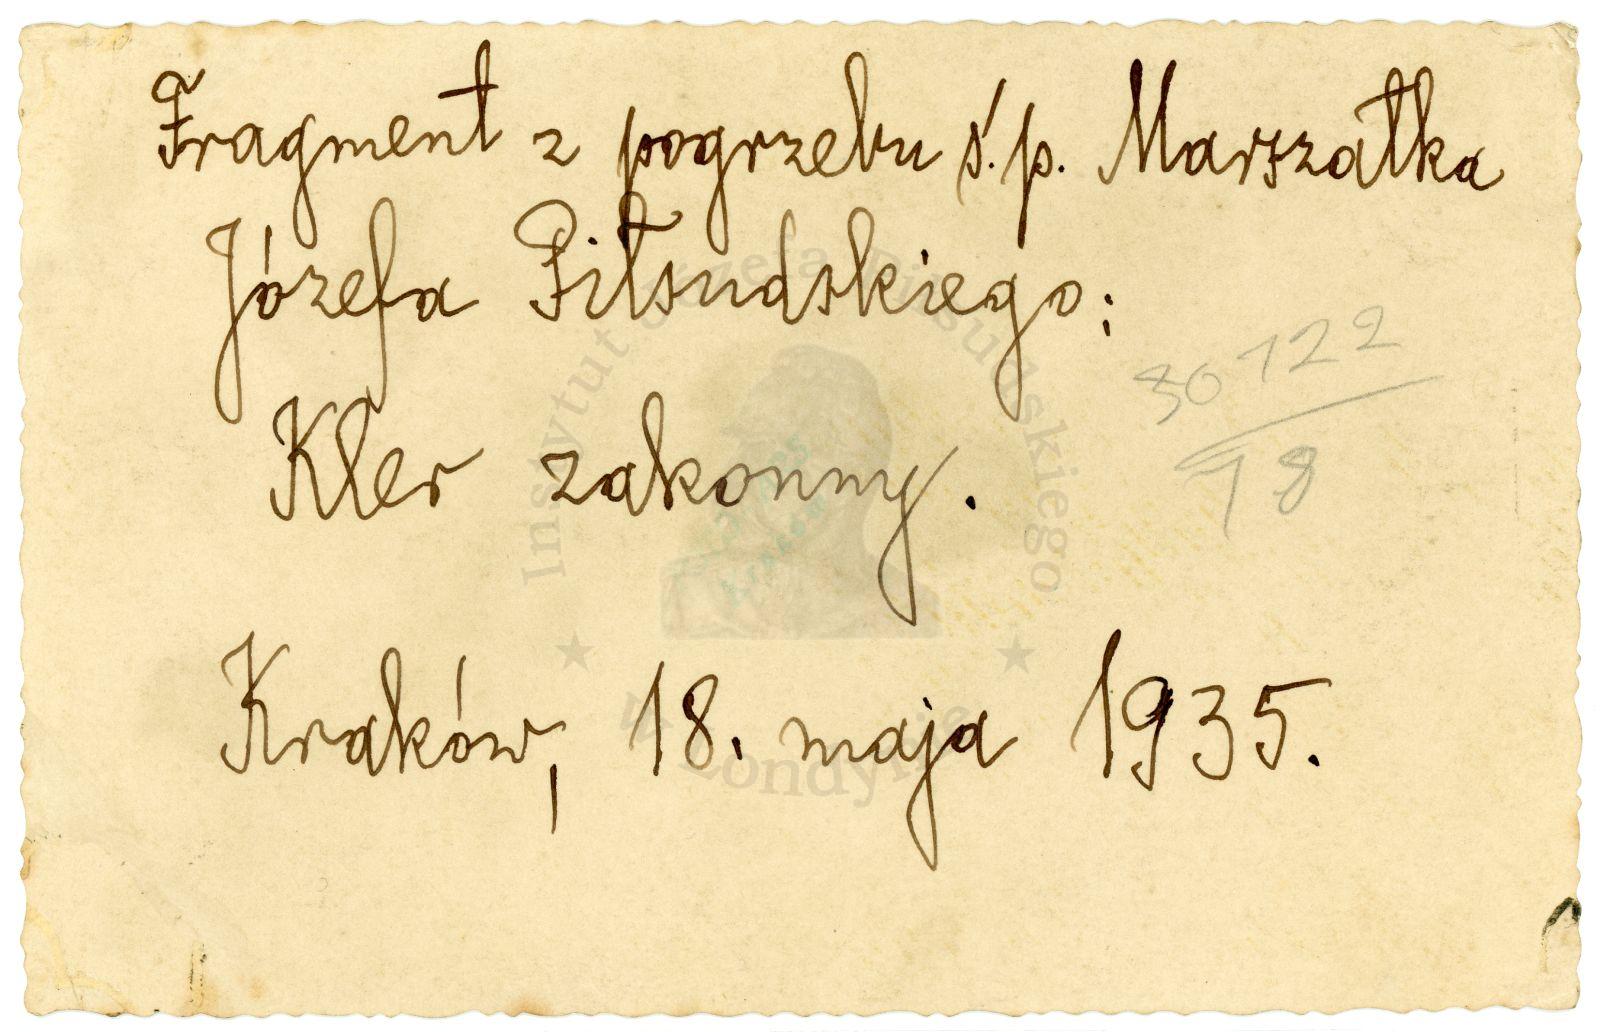 Fragment z pogrzebu ś.p. Marszałka
Józefa Piłsudskiego:
Kler zakonny.
Kraków, 18. maja 1935.
30722
78
Instytut Józefa Piłsudskiego
w Londynie